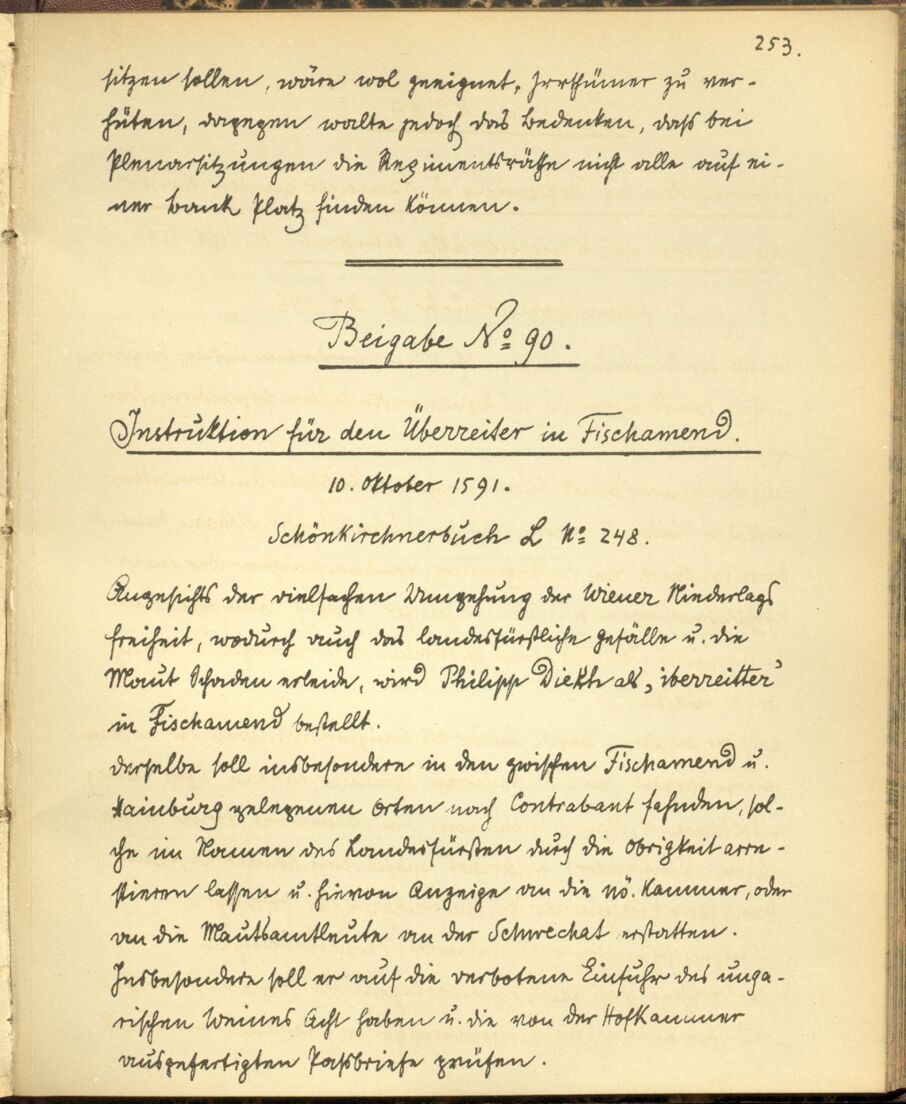 253.
sitzen sollen, wäre wol geeignet, Irrthümer zu ver-
hüten, dagegen walte jedoch das Bedenken, dass bei
Plenarsitzungen die Regimentsräthe nicht alle auf ei-
ner Bank Platz finden können.
Beigabe No 90.
Instruktion für den Überreiter in Fischamend.
10. Oktober 1591.
Schönkirchnerbuch L No 248.
Angesichts der vielfachen Umgehung der Wiener Niederlags
freiheit, wodurch auch das landesfürstliche Gefälle u. die
Maut Schaden erleide, wird Philipp als „iberreitter”
in Fischamend bestellt.
Derselbe soll insbesondere in den zwischen Fischamend u.
Hainburg gelegenen Orten nach Contrabant fahnden, sol-
che im Namen des Landesfürsten durch die Obrigkeit arre-
stieren lassen u. hievon Anzeige an die nö. Kammer, oder
an die Mautsamtleute an der Schwechat erstatten.
Insbesondere soll er auf die verbotene Einfuhr des unga-
rischen Weines Acht haben u. die von der Hofkammer
ausgefertigten Passbriefe prüfen.